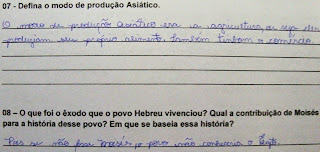 07 - Defina o modo de produção Asiático.
O modo de produção Asiático era a agricultura, ou seja eles
produziam seu próprio alimento, também tinham o comércio.
08 – O que foi o êxodo que o povo Hebreu vivenciou? Qual a contribuição de Moisés
para a história desse povo? Em que se baseia essa história?
Pois se não fosse Moisés o povo não conheceria o Egito.